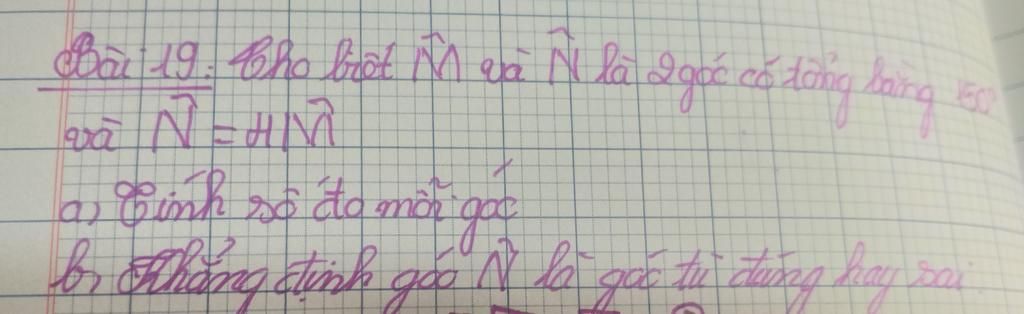 Bài 19: Cho biết M̂ và N̂ là 2 góc có tổng bằng 150°
và N̂ = 4M̂
a, Tính số đo mỗi góc
b, Khẳng định góc N̂ là góc tù đúng hay sai